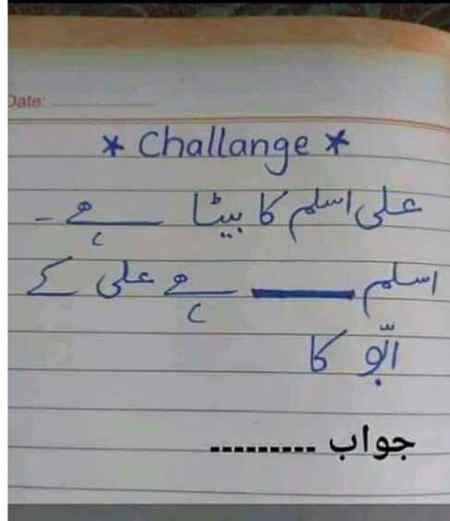 Date:
* Challange *
علی اسلم کا بیٹا ہے ۔
اسلم ــــــ ہے علی کے
ابّو کا
جواب ..........